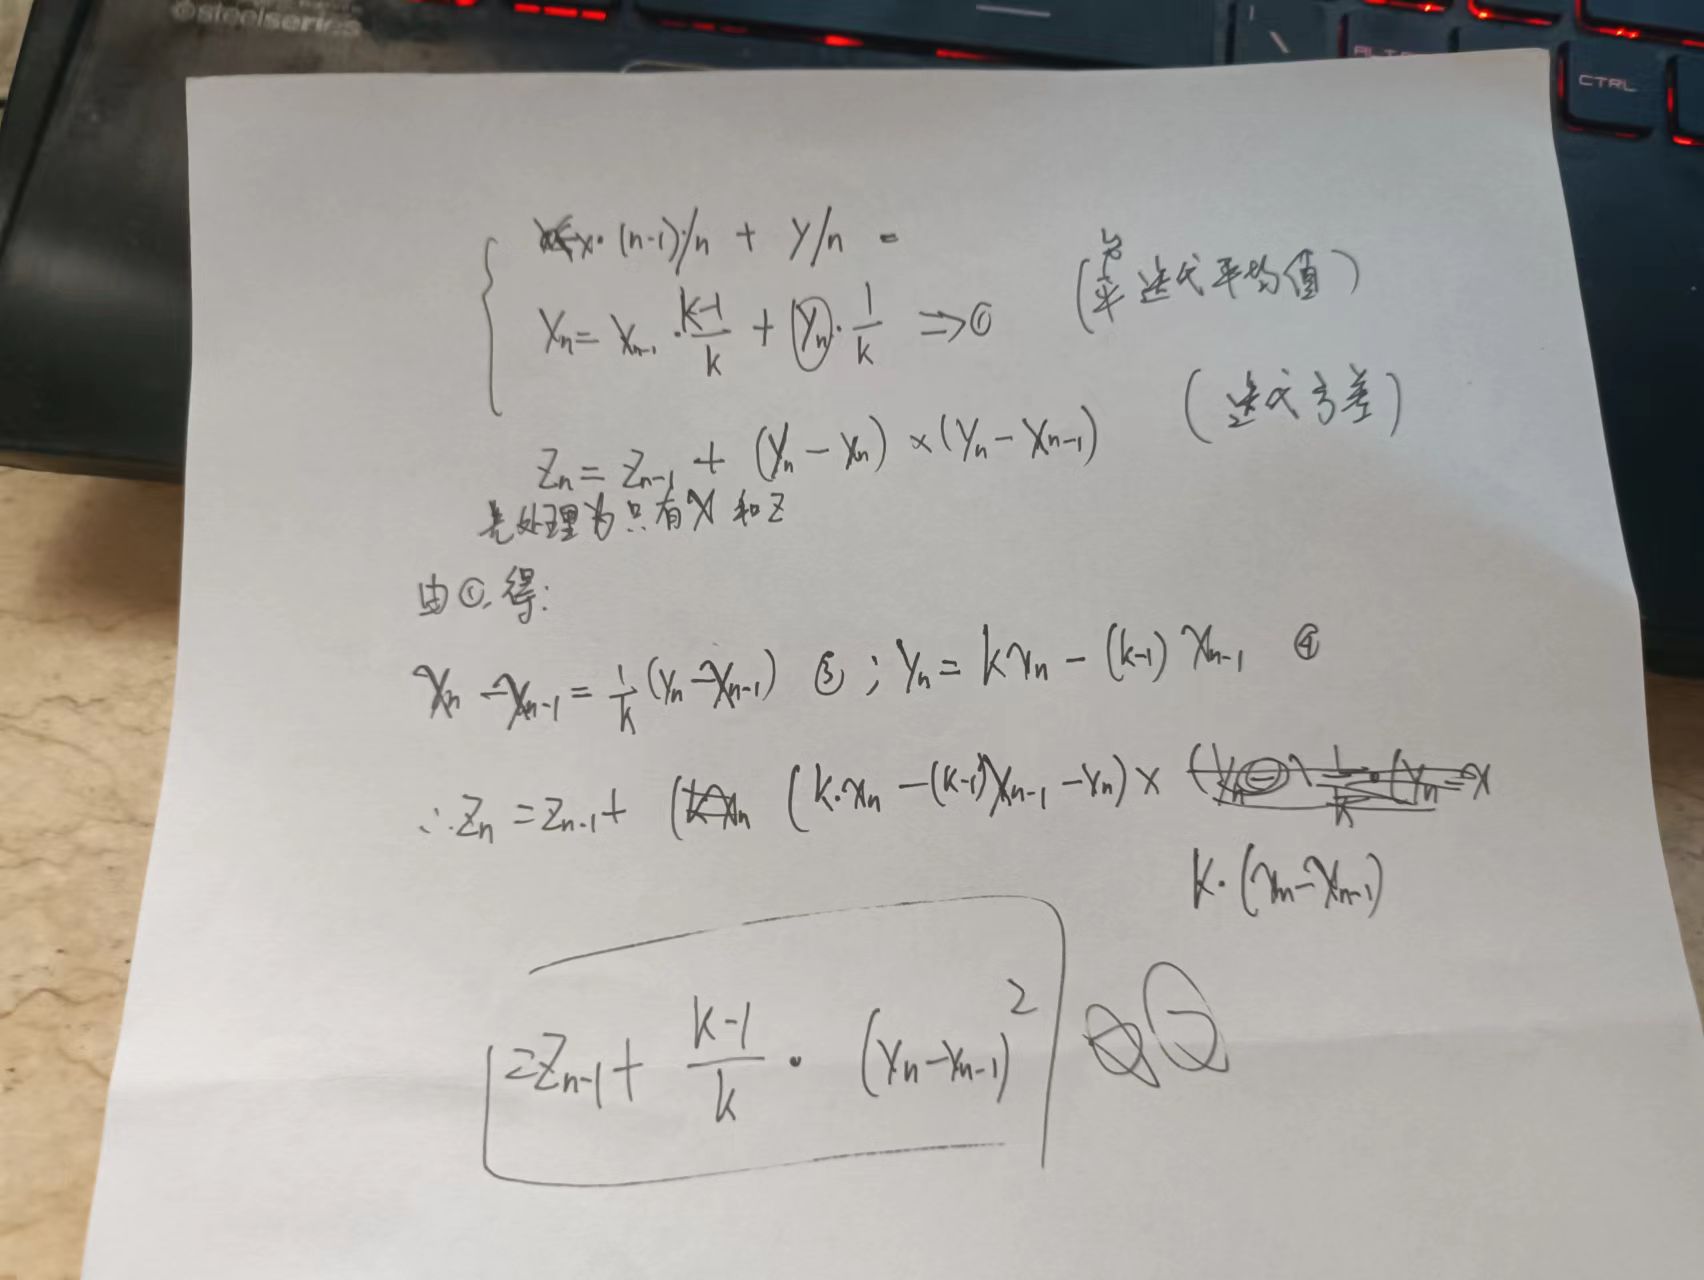 steelseries
ALT
CTRL
x·(n-1)/n + y/n =
Xn = Xn-1 · (k-1)/k + Yn · 1/k ⇒①
迭代平均值)
Zn = Zn-1 + (Yn - Xn) × (Yn - Xn-1)
(迭代方差)
先处理为只有X和Z
由①,得:
Xn - Xn-1 = 1/k (Yn - Xn-1) ③; Yn = kXn - (k-1) Xn-1 ④
∴Zn = Zn-1 + (k·Xn - (k-1)Xn-1 - Xn) ×
k·(Xn - Xn-1)
= Zn-1 + (k-1)/k · (Yn - Xn-1)²